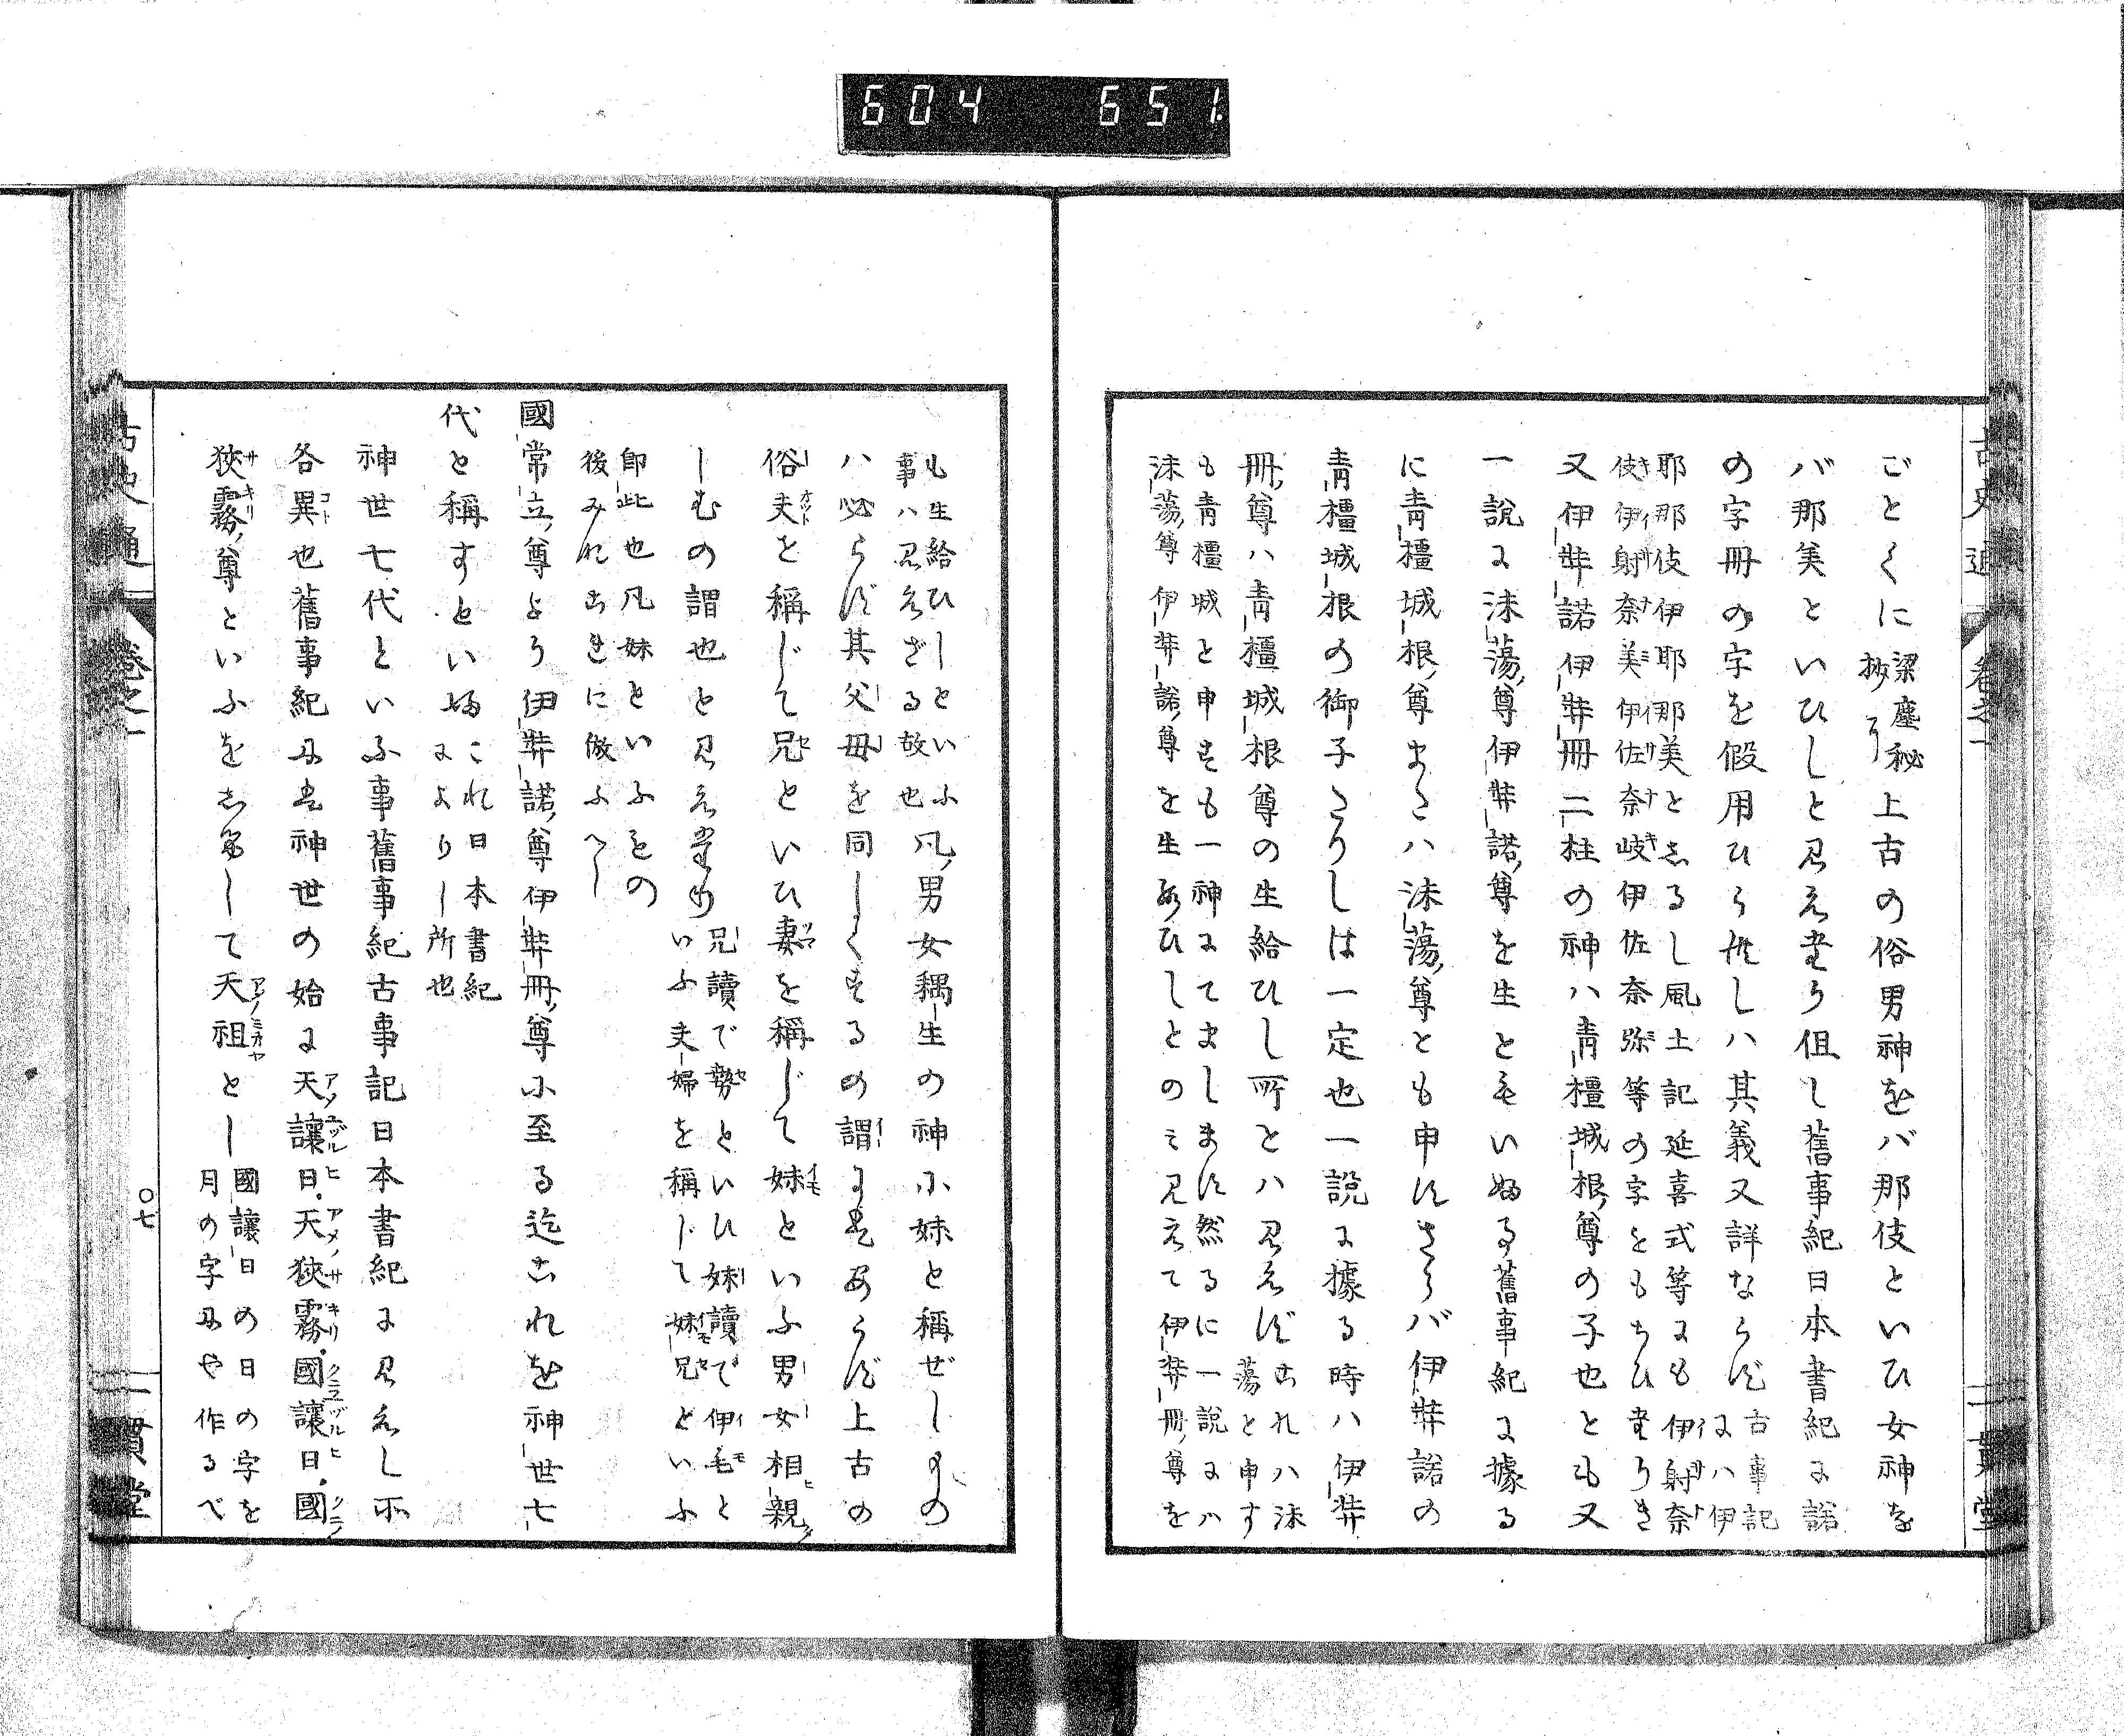 604 651.
古史通 卷之一 一貫堂
ごとくに梁塵秘抄ニアリ上古の俗男神をバ那伎といひ女神を
バ那美といひしと見えたり但し舊事紀日本書紀に諾
の字冊の字を假用ひられしハ其義又詳ならず古事記にハ伊
耶那伎伊耶那美としるし風土記延喜式等にも伊射奈
伎伊射奈美伊佐奈岐伊佐奈弥等の字をもちひたりき
又伊弉諾伊弉冊二柱の神ハ青橿城根尊の子也とも又
一説に沫蕩尊伊弉諾尊を生ともいふ舊事紀に據る
に青橿城根尊またハ沫蕩尊とも申すさらバ伊弉諾の
青橿城根の御子たりしは一定也一説に據る時ハ伊弉
冊尊ハ青橿城根尊の生給ひし所とハ見えずこれハ沫蕩と申す
も青橿城と申すも一神にてまします然るに一説にハ
沫蕩尊伊弉諾尊を生給ひしとのミ見えて伊弉冊尊を
も生給ひしといふ
事ハ見えざる故也凡男女耦生の神に妹と稱ぜしもの
ハ必らず其父母を同じくするの謂にはあらず上古の
俗夫を稱じて兄といひ妻を稱じて妹といふ男女相親
しむの謂也と見えたり兄讀で勢といひ妹讀で伊毛と
いふ夫婦を稱じて妹兄といふ
即此也凡妹といふもの
後みなこれに倣ふべし
國常立尊より伊弉諾尊伊弉冊尊に至る迄これを神世七
代と稱すといふこれ日本書紀
によりし所也
神世七代といふ事舊事紀古事記日本書紀に見えし所
各異也舊事紀には神世の始に天讓日天狹霧國讓日國
狹霧尊といふをしるして天祖とし國讓日の日の字を
月の字にや作るべ
古史通 卷之一 〇七 一貫堂